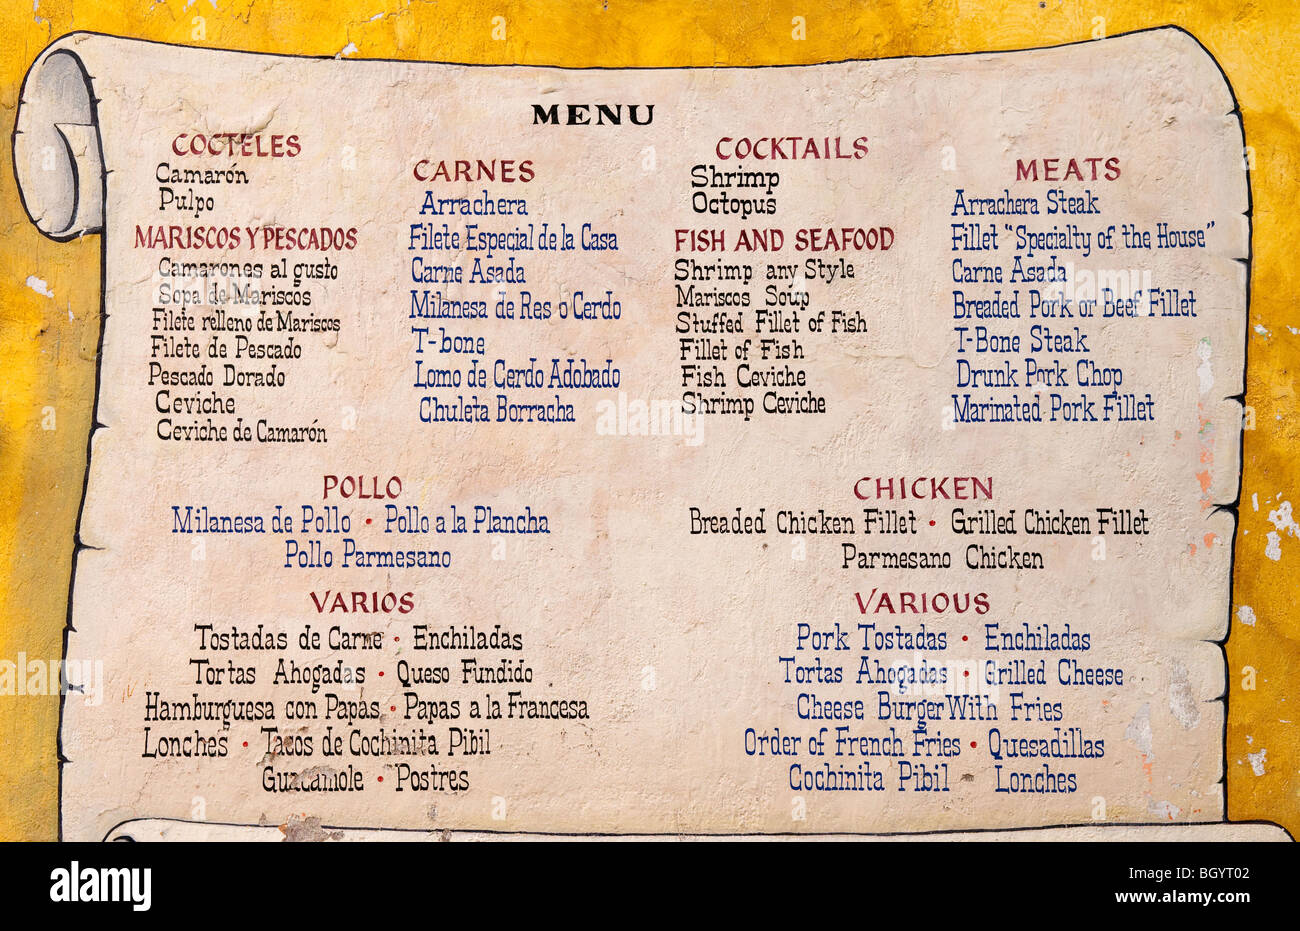 MENU
COCTELES
Camarón
Pulpo
MARISCOS Y PESCADOS
Camarones al gusto
Sopa de Mariscos
Filete relleno de Mariscos
Filete de Pescado
Pescado Dorado
Ceviche
Ceviche de Camarón
CARNES
Arrachera
Filete Especial de la Casa
Carne Asada
Milanesa de Res o Cerdo
T-bone
Lomo de Cerdo Adobado
Chuleta Borracha
COCKTAILS
Shrimp
Octopus
FISH AND SEAFOOD
Shrimp any Style
Mariscos Soup
Stuffed Fillet of Fish
Fillet of Fish
Fish Ceviche
Shrimp Ceviche
MEATS
Arrachera Steak
Fillet "Specialty of the House"
Carne Asada
Breaded Pork or Beef Fillet
T-Bone Steak
Drunk Pork Chop
Marinated Pork Fillet
POLLO
Milanesa de Pollo • Pollo a la Plancha
Pollo Parmesano
CHICKEN
Breaded Chicken Fillet • Grilled Chicken Fillet
Parmesano Chicken
VARIOS
Tostadas de Carne • Enchiladas
Tortas Ahogadas • Queso Fundido
Hamburguesa con Papas • Papas a la Francesa
Lonches • Tacos de Cochinita Pibil
Guacamole • Postres
VARIOUS
Pork Tostadas • Enchiladas
Tortas Ahogadas • Grilled Cheese
Cheese Burger With Fries
Order of French Fries • Quesadillas
Cochinita Pibil • Lonches
alamy
Image ID: BGYT02
www.alamy.com